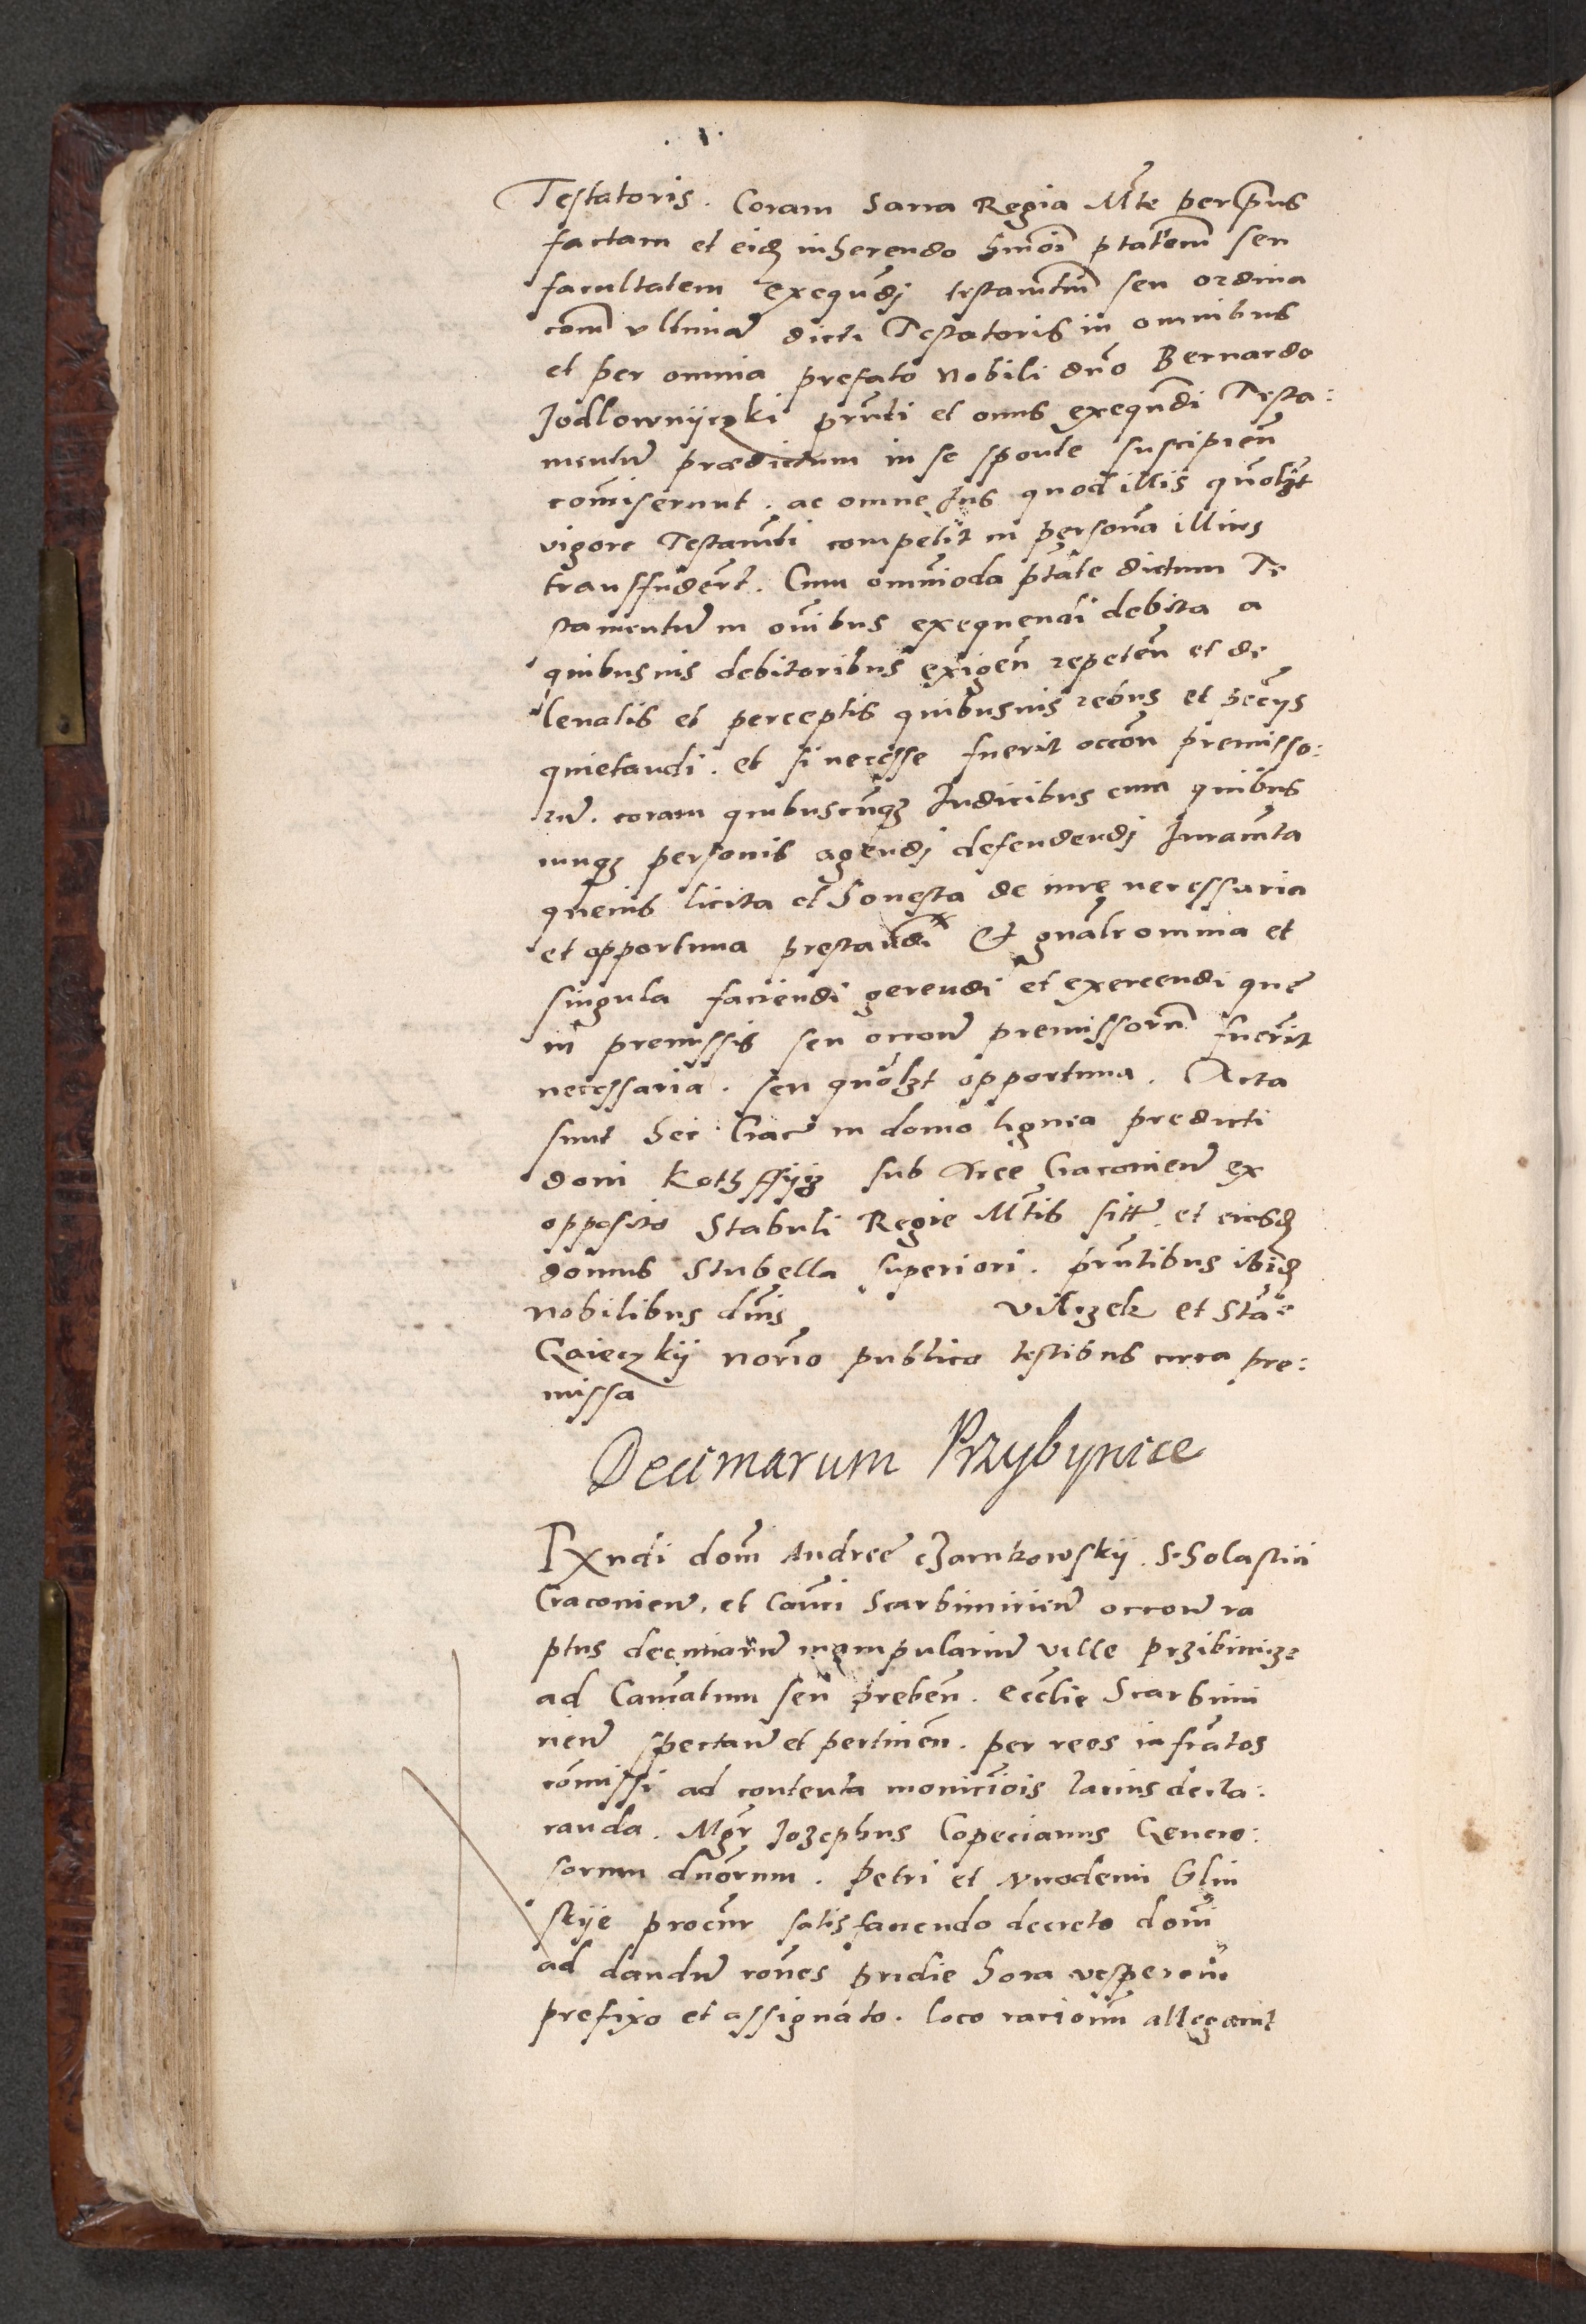 Testatoris. Coram Sacra Regia Mte per prius
factam et eid inherendo hmoi ptatem seu
facultatem exequndj testamtm seu ordina
com vltimar dicti Testatoris in omnibus
et per omnia prefato Nobili dno Bernardo
Jodlownijczki pnti et onus exequndi Testa:
mentu praedictum in se sponte suscipien
comiserunt. ac omne Ius quod illis quolzt
vigore Testamti competit in persona illius
transffudert. Cum omnioda ptate dictum Te
stamentu in omibus exequendi debita a
quibusuis debitoribus exigen repeten et de
leuatis et perceptis quibusuis rebus et pecys
quietandi. et si necesse fuerit occon premisso:
ru. coram quibuscunqz Iudicibus cum quibus
cunqz personis agendj defendendj Iuramta
queuis licita et honesta de iure necessaria
et opportuna prestandi Et gnalr omnia et
singula faciendi gerendi et exercendi que
in premissis seu occone premissoru fuerit
necessaria. seu quolzt opportuna. Acta
sunt hec Crac in domo lignea predicti
domi Koth sub Arce Cracouien ex
opposito Stabuli Regie Mtis sitt. et eiusd
domus Stubella superiori. pntibus ibid
Nobilibus dnis Vilczek et Sta
Gaieczkij norio publico testibus circa pre:
missa
Decimarum Przybynice
Rxndi dom Andree czarnkowskij. Scholastici
Cracouien. et Canci Scarbimirien occone ra
ptus decimaru manipulariu ville Przibinicze
ad Canicatum seu preben. ecclie Scarbimi
rien spectan et pertinen. per reos infratos
comissi ad contenta moniciois lacius decla:
randa. Mgr Iozephus Copecianus Genero:
sorum dnorum. Petri et Nicodemi Glin
skije procur satisfaciendo decreto domi
ad dandu rones pridie hora vesperor
prefixo et assignato. loco racionu allegauit